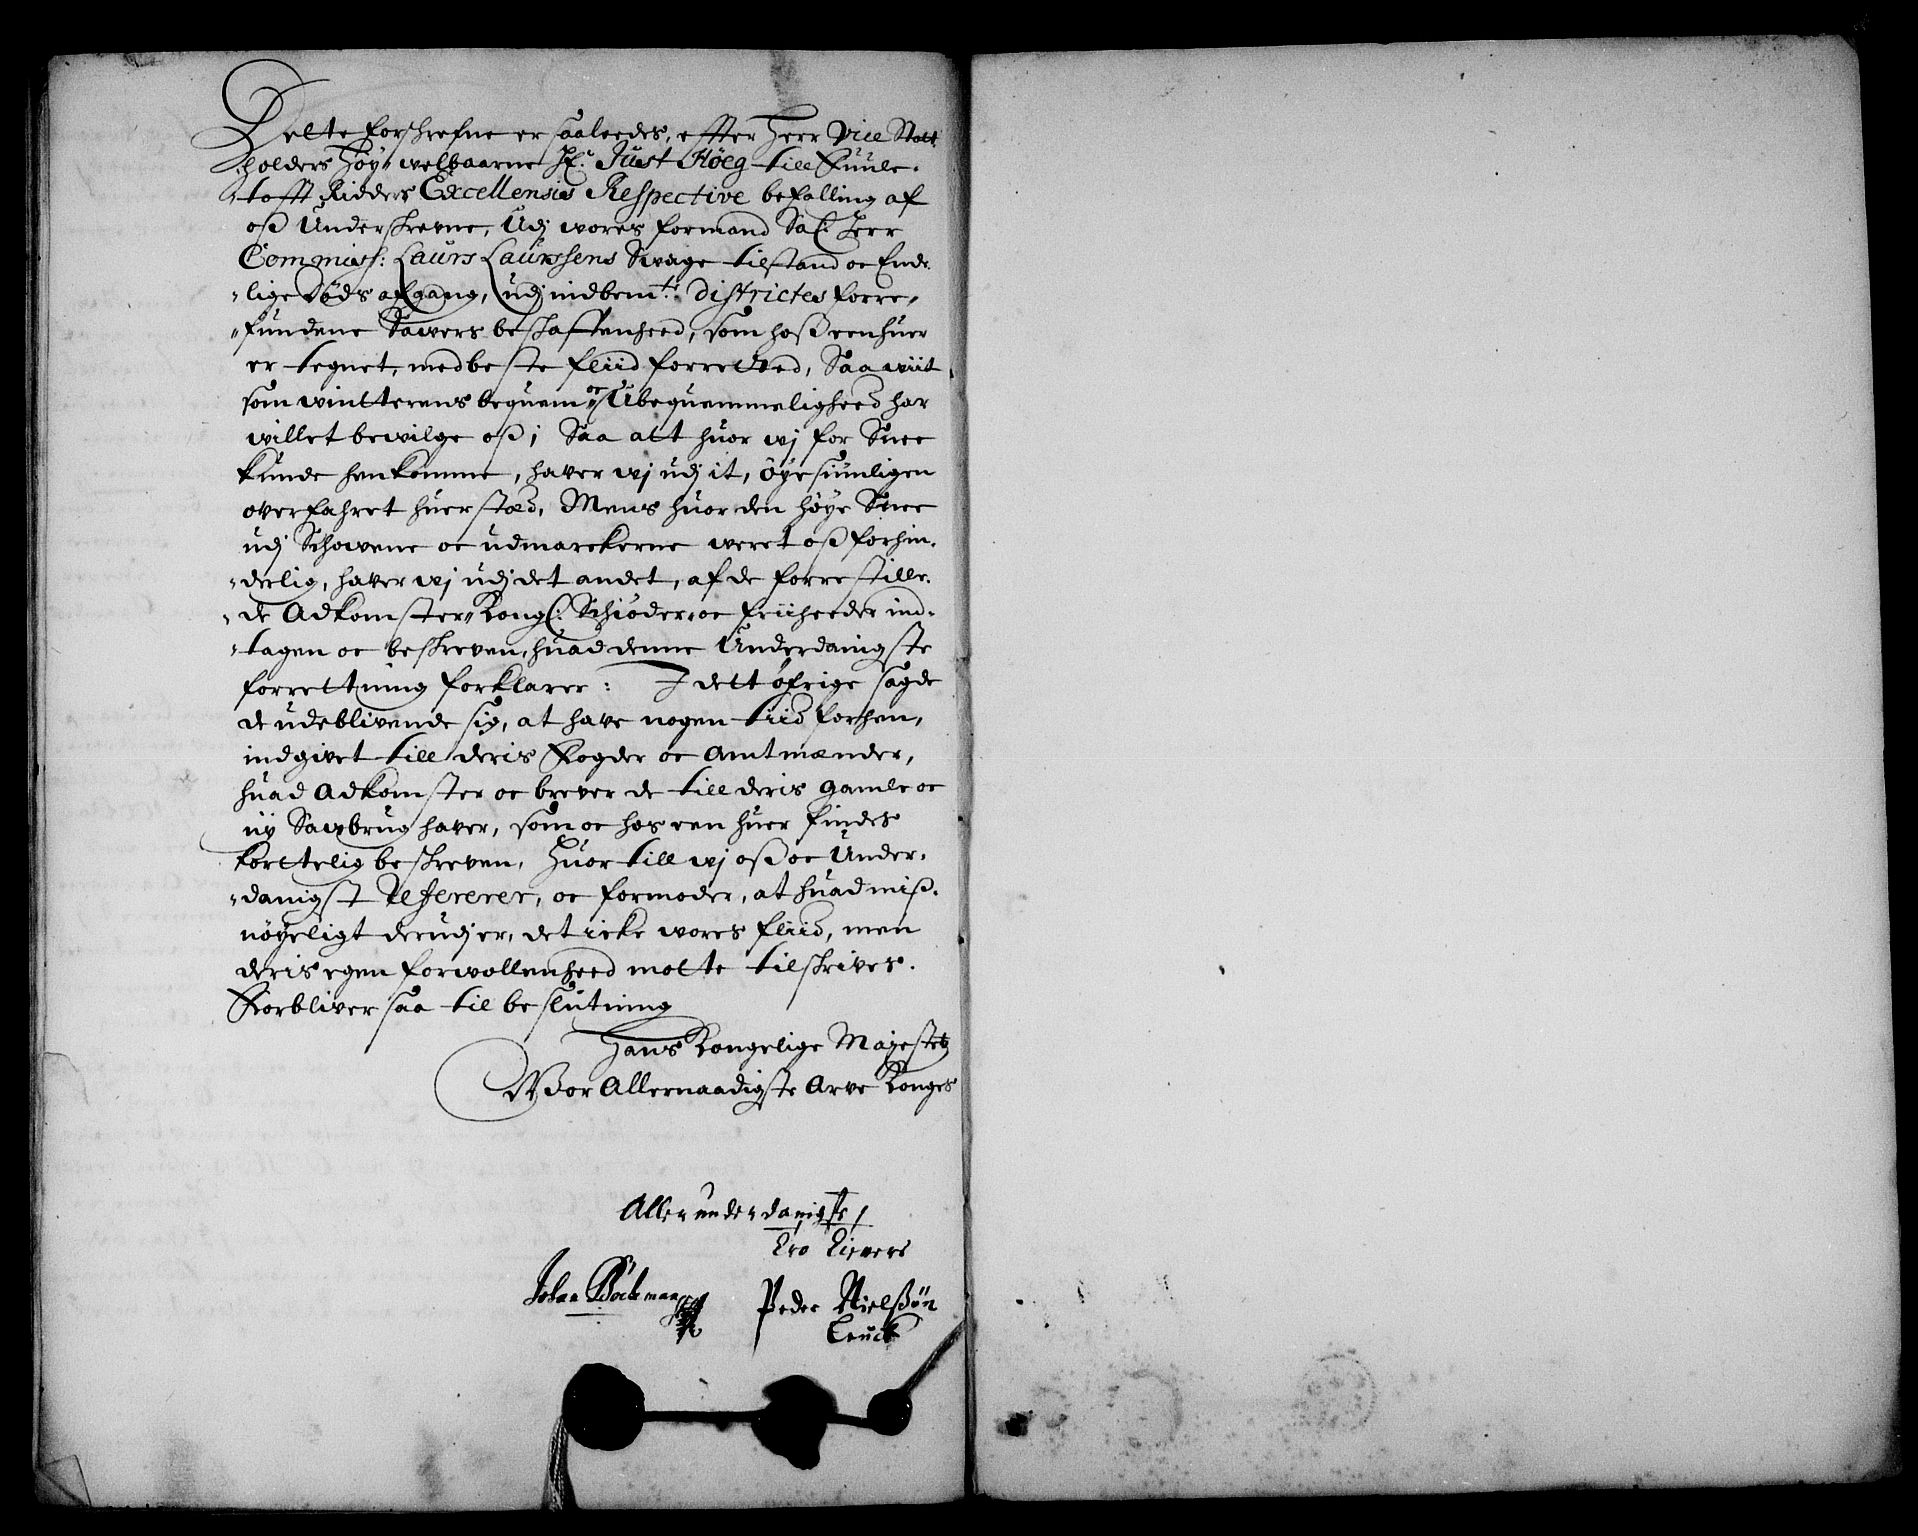 Dette forschrefne er saaleedes, effter Herr Vice Statt
holders Høy„welbaarne Hr: Just Høeg till Fuule„
„tofft Ridders Excellensis Respective befalling af
oß Underschrevne, Udj wores formand Sal: Herr
Commiss: Laurs Laurssens Swage tilstand oc Ende„
„lige Døds afgang, udj indbemte: Districtes forre„
„fundene Sawers beschaffenheed, som hoß een huer
er tegnet, med beste fliid forretted, Saa wiit
som wintterens bequem„ oc Ubequemmeligheed har
willet bewilge oß; Saa att huor wj for Snee
kunde henkomme, haver wj udj it, øyesiunligen
overfahret huer stæd, Mens huor den høye Snee
udj Schowene oc udmarckerne weret oß forhin„
„derlig, haver wj udj det andet, af de forrestille„
„de Adkomster„ Kongl: Schiøder„ oc friiheeder ind„
„tagen oc beskreven, huad denne Underdanigste
forrettning forklarer: I dett øfrige sagde
de udeblivende sig, at have nogen tiid forhen,
indgivet till deris Fogder oc Amtmænder,
huad Adkomster oc brever de till deris gamle oc
ny Sawbrug haver, som oc hos een huer findes
korttelig beskreven, Huor till wj oß oc Under„
„danigst Refererer, oc formoder, at huad miß„
nøyeligt derudj er, det icke wores fliid, men
deris egen forwollenheed motte tilskrives.
Forbliver saa til beslutning
Hans Kongelige Majestetz
Wor Allernaadigste Arve Konges
Allerunderdanigste
Johan Böckman
Peder Nielßøn
Leuck